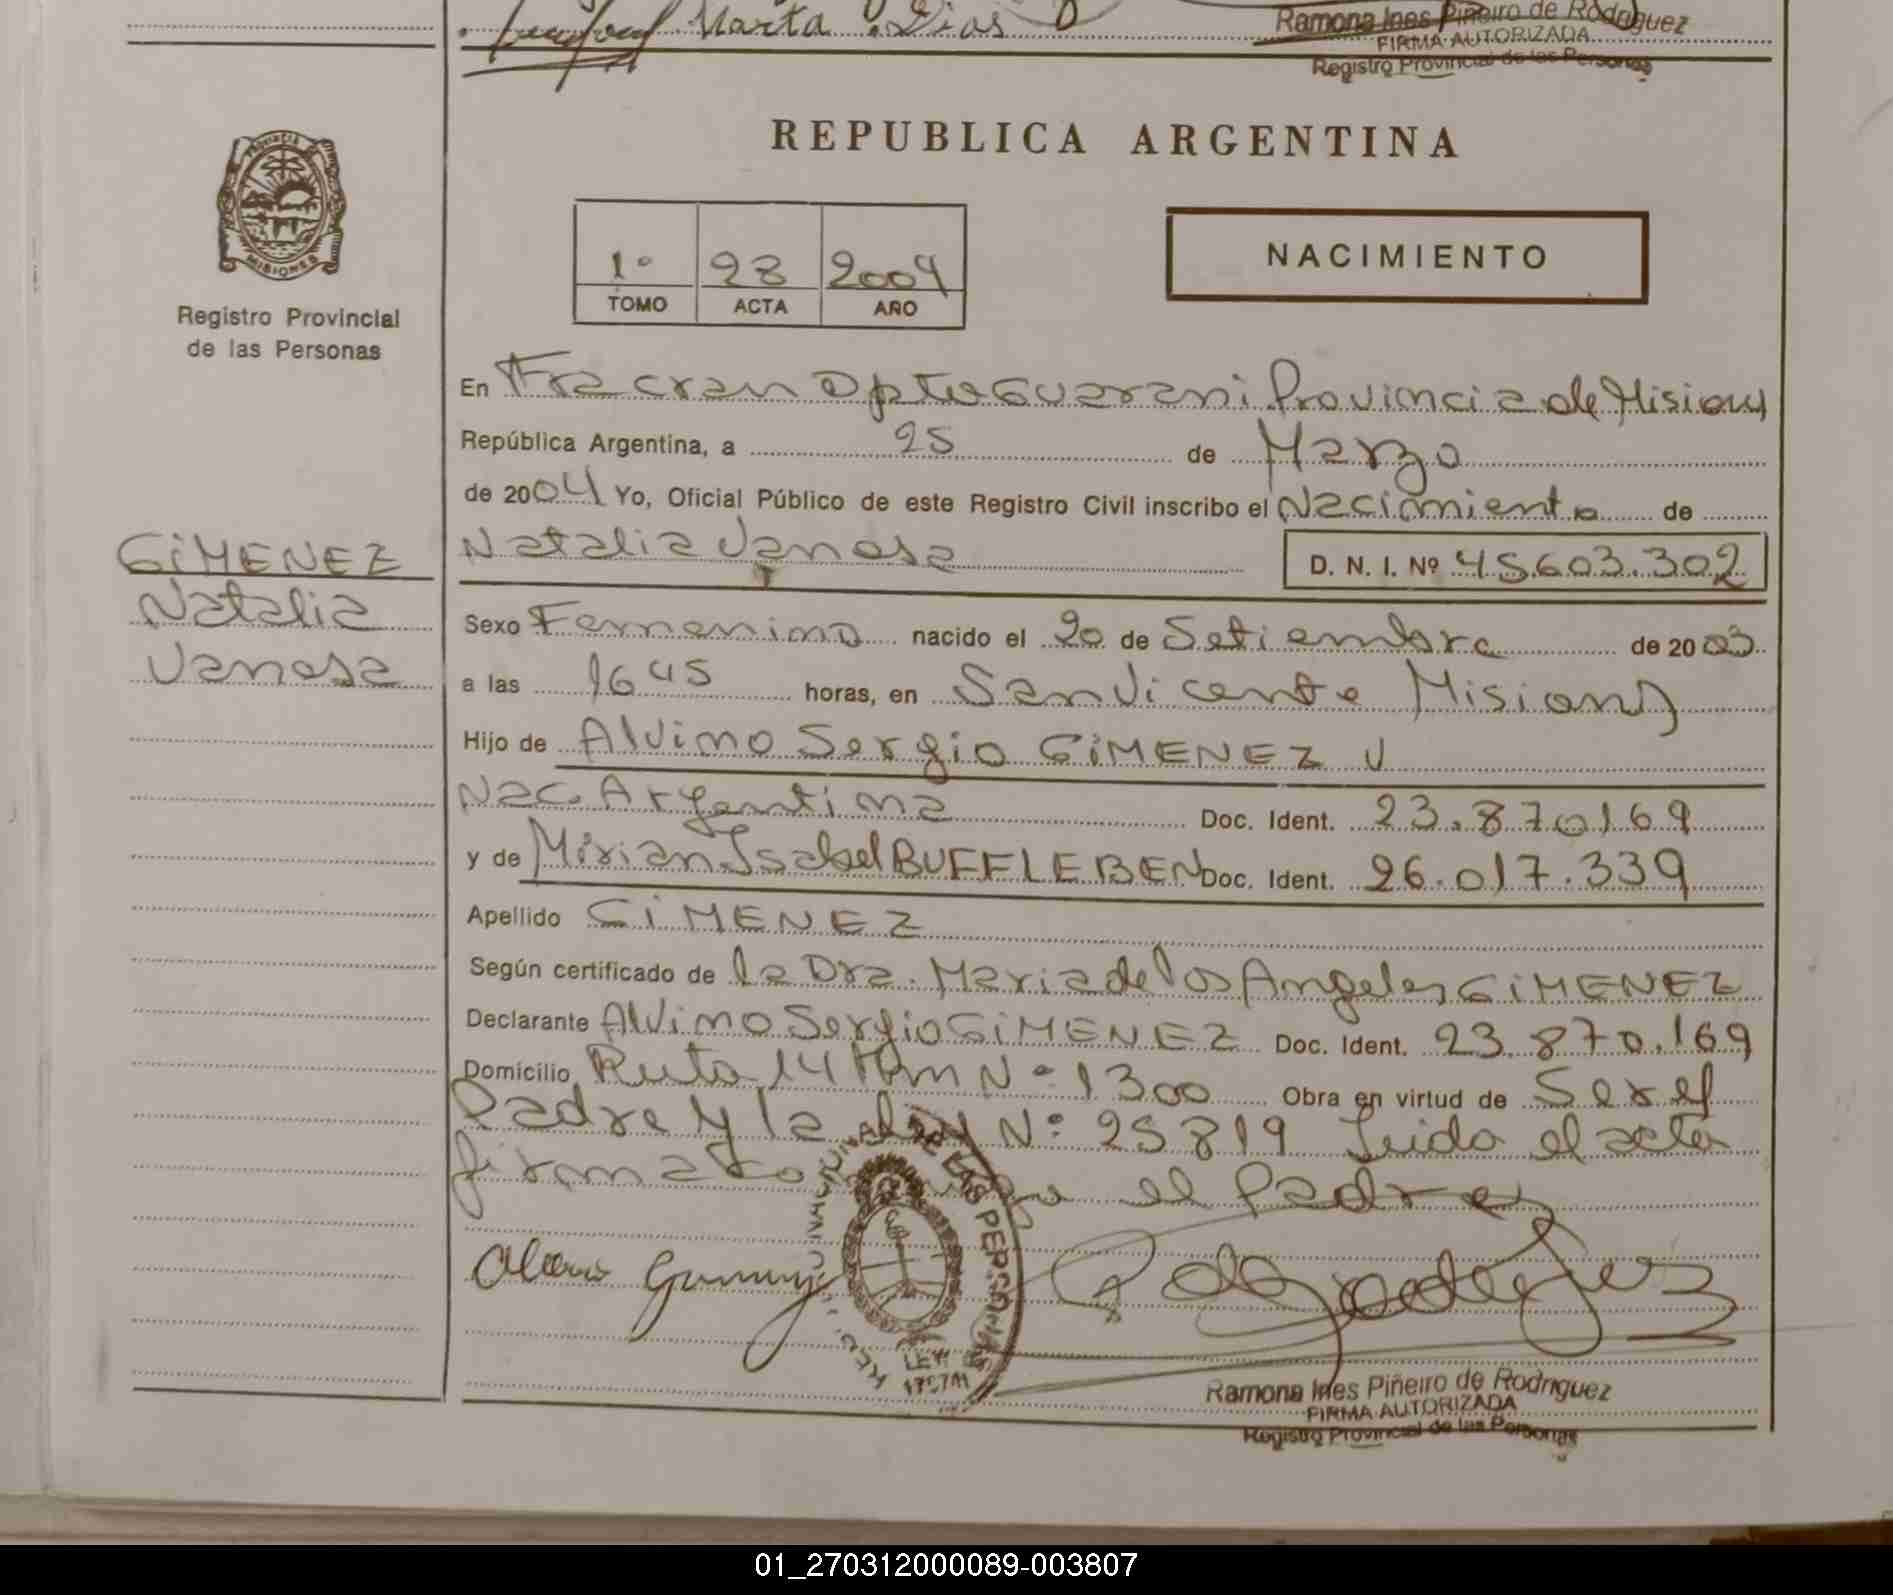 Marta Dias
Ramona Ines Piñeiro de Rodriguez
FIRMA AUTORIZADA
Registro Provincial de las Personas
REPUBLICA ARGENTINA
PROVINCIA DE
MISIONES
Registro Provincial
de las Personas
1º 23 2004
TOMO ACTA AÑO
NACIMIENTO
En Fracran Dpto Guarani Provincia de Misiones
República Argentina, a 25 de Marzo
de 2004 Yo, Oficial Público de este Registro Civil inscribo el Nacimiento de
Natalia Vanesa D. N. I. Nº 45.603.302
GIMENEZ
Natalia
Vanesa
Sexo Femenino nacido el 20 de Setiembre de 2003
a las 16 45 horas, en San Vicente Misiones
Hijo de Alvino Sergio GIMENEZ
Nac. Argentina Doc. Ident. 23.870169
y de Mirian Isabel BUFFLEBEN Doc. Ident. 26.017.339
Apellido GIMENEZ
Según certificado de la Dra. Maria de los Angeles GIMENEZ
Declarante Alvino Sergio GIMENEZ Doc. Ident. 23.870.169
Domicilio Ruta 14 Km Nº 1300 Obra en virtud de Ser el
Padre y la Ley Nº 25819 Leido el acta
firma el Padre
DE LAS PERSONAS
LEY
Ramona Ines Piñeiro de Rodriguez
FIRMA AUTORIZADA
Registro Provincial de las Personas
01_270312000089-003807